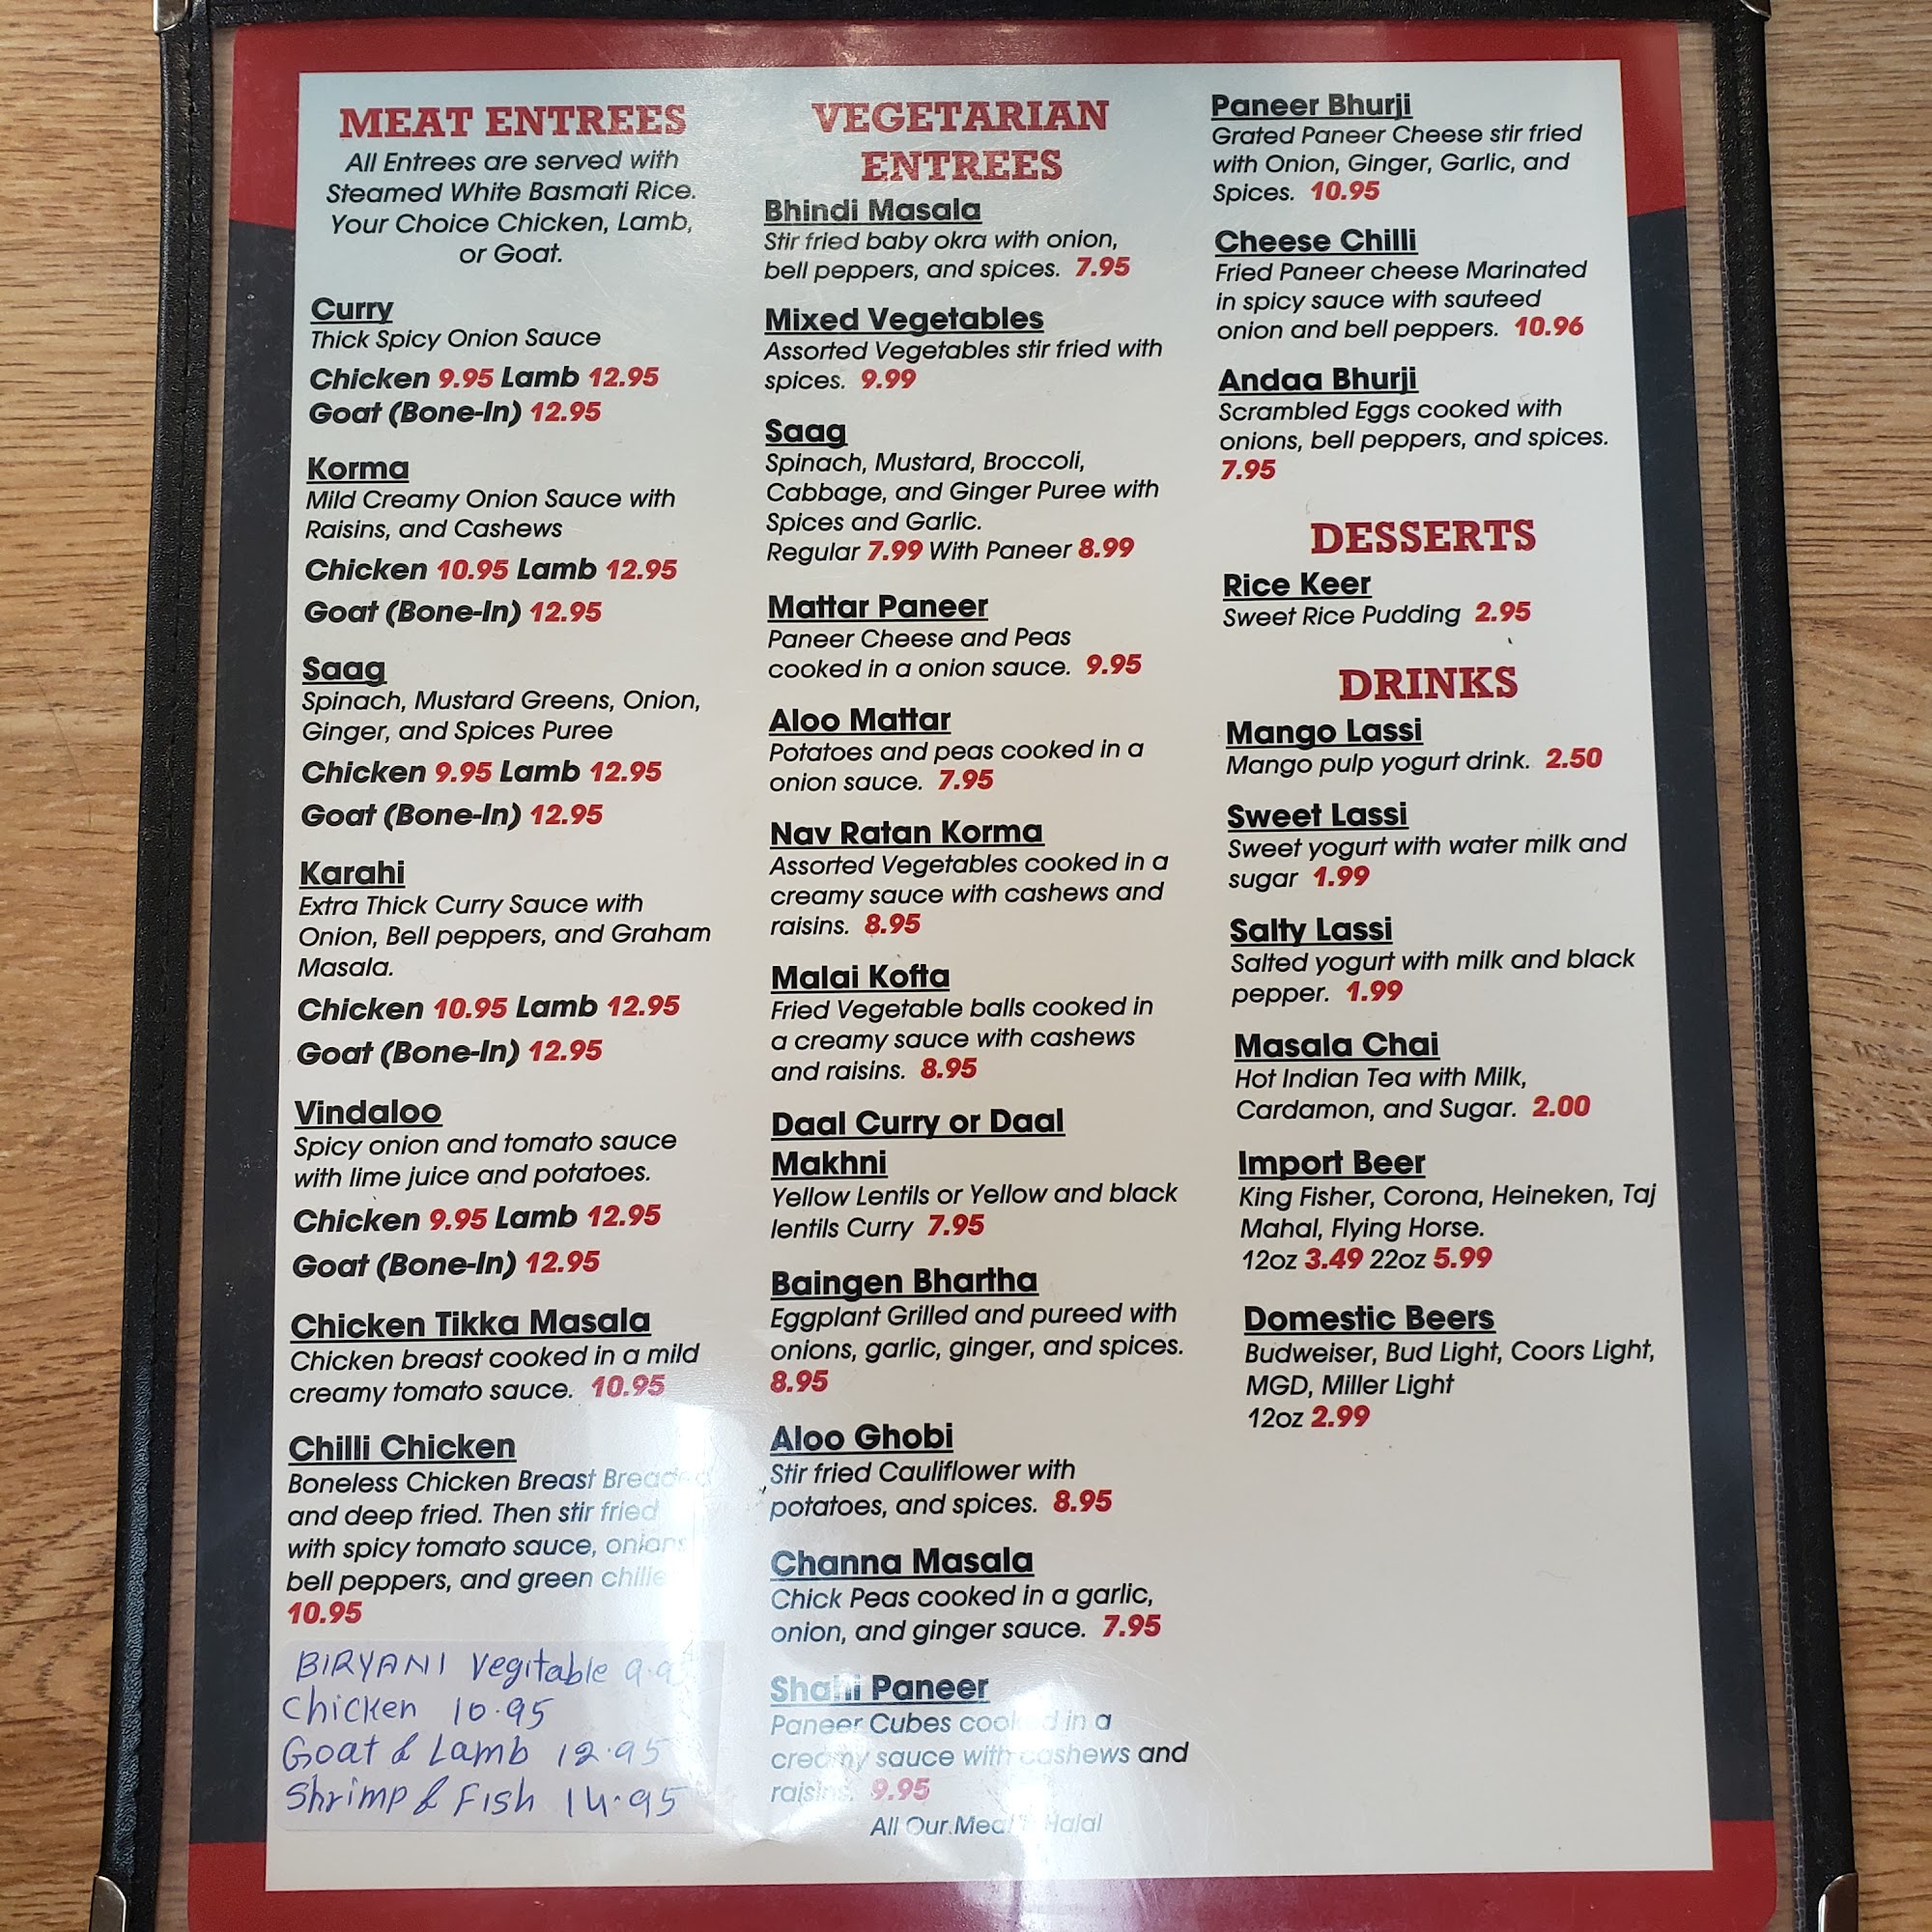 MEAT ENTREES
All Entrees are served with
Steamed White Basmati Rice.
Your Choice Chicken, Lamb,
or Goat.
Curry
Thick Spicy Onion Sauce
Chicken 9.95 Lamb 12.95
Goat (Bone-In) 12.95
Korma
Mild Creamy Onion Sauce with
Raisins, and Cashews
Chicken 10.95 Lamb 12.95
Goat (Bone-In) 12.95
Saag
Spinach, Mustard Greens, Onion,
Ginger, and Spices Puree
Chicken 9.95 Lamb 12.95
Goat (Bone-In) 12.95
Karahi
Extra Thick Curry Sauce with
Onion, Bell peppers, and Graham
Masala.
Chicken 10.95 Lamb 12.95
Goat (Bone-In) 12.95
Vindaloo
Spicy onion and tomato sauce
with lime juice and potatoes.
Chicken 9.95 Lamb 12.95
Goat (Bone-In) 12.95
Chicken Tikka Masala
Chicken breast cooked in a mild
creamy tomato sauce. 10.95
Chilli Chicken
Boneless Chicken Breast Breaded
and deep fried. Then stir fried
with spicy tomato sauce, onions
bell peppers, and green chilie
10.95
BIRYANI Vegitable
Chicken 10.95
Goat & Lamb 12.95
Shrimp & Fish 14.95
VEGETARIAN
ENTREES
Bhindi Masala
Stir fried baby okra with onion,
bell peppers, and spices. 7.95
Mixed Vegetables
Assorted Vegetables stir fried with
spices. 9.99
Saag
Spinach, Mustard, Broccoli,
Cabbage, and Ginger Puree with
Spices and Garlic.
Regular 7.99 With Paneer 8.99
Mattar Paneer
Paneer Cheese and Peas
cooked in a onion sauce. 9.95
Aloo Mattar
Potatoes and peas cooked in a
onion sauce. 7.95
Nav Ratan Korma
Assorted Vegetables cooked in a
creamy sauce with cashews and
raisins. 8.95
Malai Kofta
Fried Vegetable balls cooked in
a creamy sauce with cashews
and raisins. 8.95
Daal Curry or Daal
Makhni
Yellow Lentils or Yellow and black
lentils Curry 7.95
Baingen Bhartha
Eggplant Grilled and pureed with
onions, garlic, ginger, and spices.
8.95
Aloo Ghobi
Stir fried Cauliflower with
potatoes, and spices. 8.95
Channa Masala
Chick Peas cooked in a garlic,
onion, and ginger sauce. 7.95
Shahi Paneer
Paneer Cubes cooked in a
creamy sauce with cashews and
raisins. 9.95
All Our Meat is Halal
Paneer Bhurji
Grated Paneer Cheese stir fried
with Onion, Ginger, Garlic, and
Spices. 10.95
Cheese Chilli
Fried Paneer cheese Marinated
in spicy sauce with sauteed
onion and bell peppers. 10.96
Andaa Bhurji
Scrambled Eggs cooked with
onions, bell peppers, and spices.
7.95
DESSERTS
Rice Keer
Sweet Rice Pudding 2.95
DRINKS
Mango Lassi
Mango pulp yogurt drink. 2.50
Sweet Lassi
Sweet yogurt with water milk and
sugar 1.99
Salty Lassi
Salted yogurt with milk and black
pepper. 1.99
Masala Chai
Hot Indian Tea with Milk,
Cardamon, and Sugar. 2.00
Import Beer
King Fisher, Corona, Heineken, Taj
Mahal, Flying Horse.
12oz 3.49 22oz 5.99
Domestic Beers
Budweiser, Bud Light, Coors Light,
MGD, Miller Light
12oz 2.99